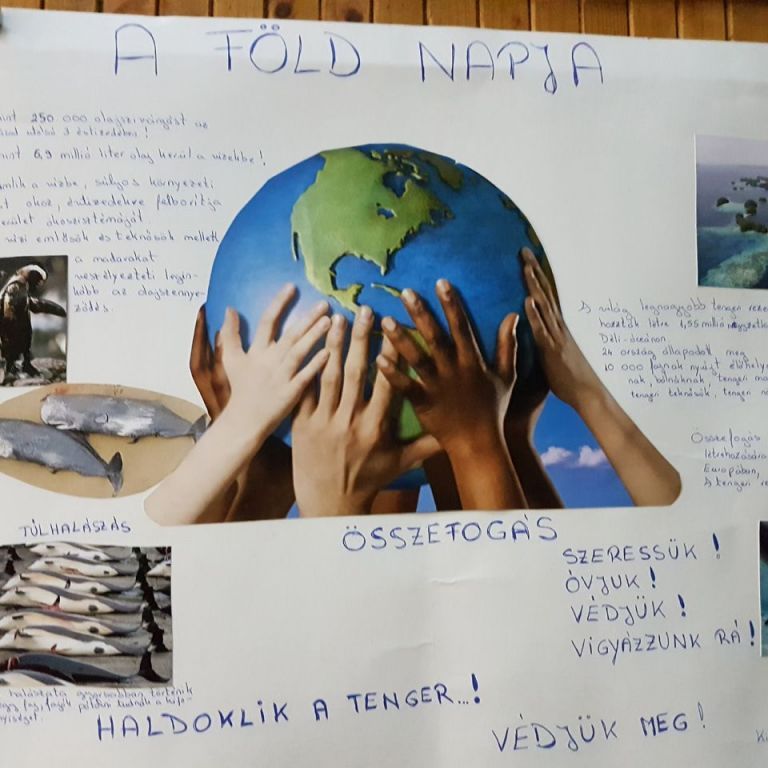 A FÖLD NAPJA
250 000 olajszivárgást az
utolsó 3 évtizedében!
6,9 millió liter olaj kerül a vizekbe!
a vízbe, súlyos környezeti
okoz, évtizedekre felborítja
ökoszisztémáját.
vízi emlősök és teknősök mellett
a madarakat
veszélyezteti legin-
kább az olajszennye-
ződés.
A világ legnagyobb tengeri
hozták létre 1,55 millió
Déli-óceánon
24 ország állapodott meg
10 000 fajnak nyújt
bálnáknak, tengeri
tengeri teknősök, tengeri
Összefogás
létrehozására
Európában,
A tengeri
TÚLHALÁSZÁS
ÖSSZEFOGÁS
SZERESSÜK!
ÓVJUK!
VÉDJÜK!
VIGYÁZZUNK RÁ!
halászata gyorsabban történik
HALDOKLIK A TENGER...!
VÉDJÜK MEG!